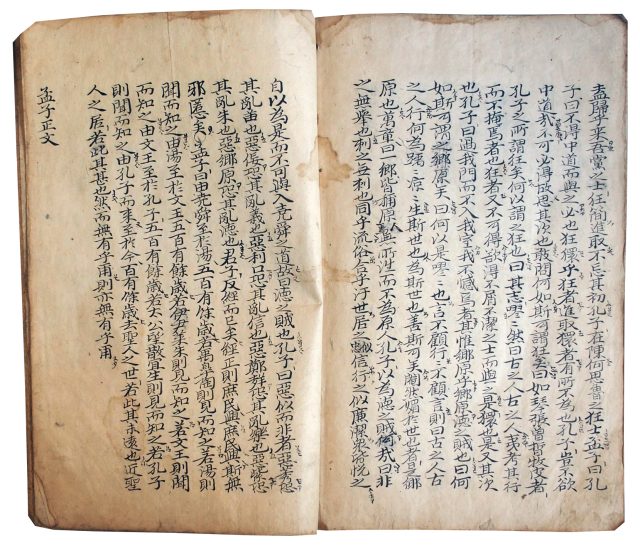 盍歸乎來吾黨之士狂簡進取不忘其初孔子在陳何思魯之狂士孟子曰孔
子曰不得中道而與之必也狂獧乎狂者進取獧者有所不為也孔子豈不欲
中道哉不可必得故思其次也敢問何如斯可謂狂矣曰如琴張曾晳牧皮者
孔子之所謂狂矣何以謂之狂也曰其志嘐〻然曰古之人古之人夷考其行
而不掩焉者也狂者又不可得欲得不屑不潔之士而與之是獧也是又其次
也孔子曰過我門而不入我室我不憾焉者其惟鄉原乎鄉原德之賊也曰何
如斯可謂之鄉原矣曰何以是嘐〻也言不顧行〻不顧言則曰古之人古
之人行何為踽〻凉〻生斯世也為斯世也善斯可矣閹然媚於世也者是鄉
原也萬章曰一鄉皆稱原人焉無所往而不為原人孔子以為德之賊何哉曰非
之無舉也刺之無刺也同乎流俗合乎汙世居之似忠信行之似廉潔衆皆悅之
自以為是而不可與入堯舜之道故曰德之賊也孔子曰惡似而非者惡莠恐
其亂苗也惡佞恐其亂義也惡利口恐其亂信也惡鄭聲恐其亂樂也惡紫恐
其亂朱也惡鄉原恐其亂德也君子反經而已矣經正則庶民興庶民興斯無
邪慝矣孟子曰由堯舜至於湯五百有餘歲若禹皋陶則見而知之若湯則
聞而知之由湯至於文王五百有餘歲若伊尹萊朱則見而知之若文王則聞
而知之由文王至於孔子五百有餘歲若太公望散宜生則見而知之若孔子
則聞而知之由孔子而來至於今百有餘歲去聖人之世若此其未遠也近聖
人之居若此其甚也然而無有乎爾則亦無有乎爾
孟子正文